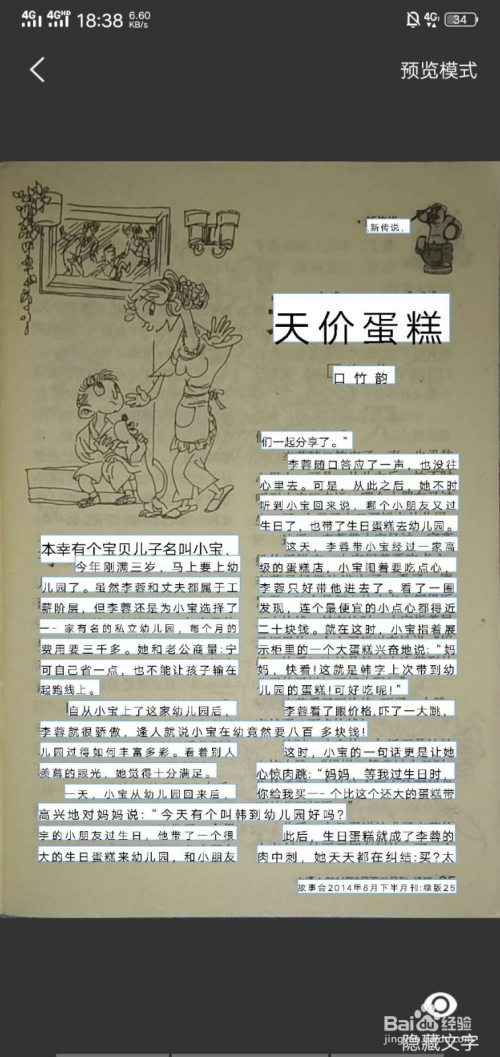 4G 4GHD 18:38 6.60 KB/s 4G 34
预览模式
新传说,
天价蛋糕
口竹韵
本幸有个宝贝儿子名叫小宝,
今年刚满三岁，马上要上幼
儿园了。虽然李蓉和丈夫都属于工
薪阶屏，但李蓉还是为小宝选择了
一- 家有名的私立幼儿园，每个月的
费用要三千多。她和老公商量:宁
可自己省一点，也不能让孩子输在
起跑线上。
自从小宝上了这家幼儿园后，
李蓉就很骄傲，逢人就说小宝在幼竟然要八百 多块钱!
儿园过得如何丰富多彩。看着别人
羡慕的眼光，她觉得十分满足。
一天，小宝从幼儿园回来后，
高兴地对妈妈说:“今天有个叫韩到幼儿园好吗?
字的小朋友过生日，他带了一个很
大的生日蛋糕来幼儿园，和小朋友
们一起分享了。”
李蓉随口答应了一声，也没往
心里去。可是，从此之后，她不时
听到小宝回来说，哪个小朋友又过
生日了，也带了生日蛋糕去幼儿园。
这天，李蓉带小宝经过一家高
级的蛋糕店，小宝闹着要吃点心，
李蓉只好带他进去了。看了一圈
发现，连个最便宜的小点心都得近
二十块钱。就在这时，小宝指着展
示柜里的一个大蛋糕兴奋地说:“妈
妈，快看!这就是韩字上次带到幼
儿园的蛋糕!可好吃呢!”
李蓉看了眼价格,吓了一大跳，
这时，小宝的一句话更是让她
心惊肉跳:“妈妈，等我过生日时，
你给我买一- 个比这个还大的蛋糕带
此后，生日蛋糕就成了李蓉的
肉中刺，她天天都在纠结:买?太
故事会2014年6月下半月刊:绿版25
Baidu经验
jingyan.baidu.com
隐藏文字